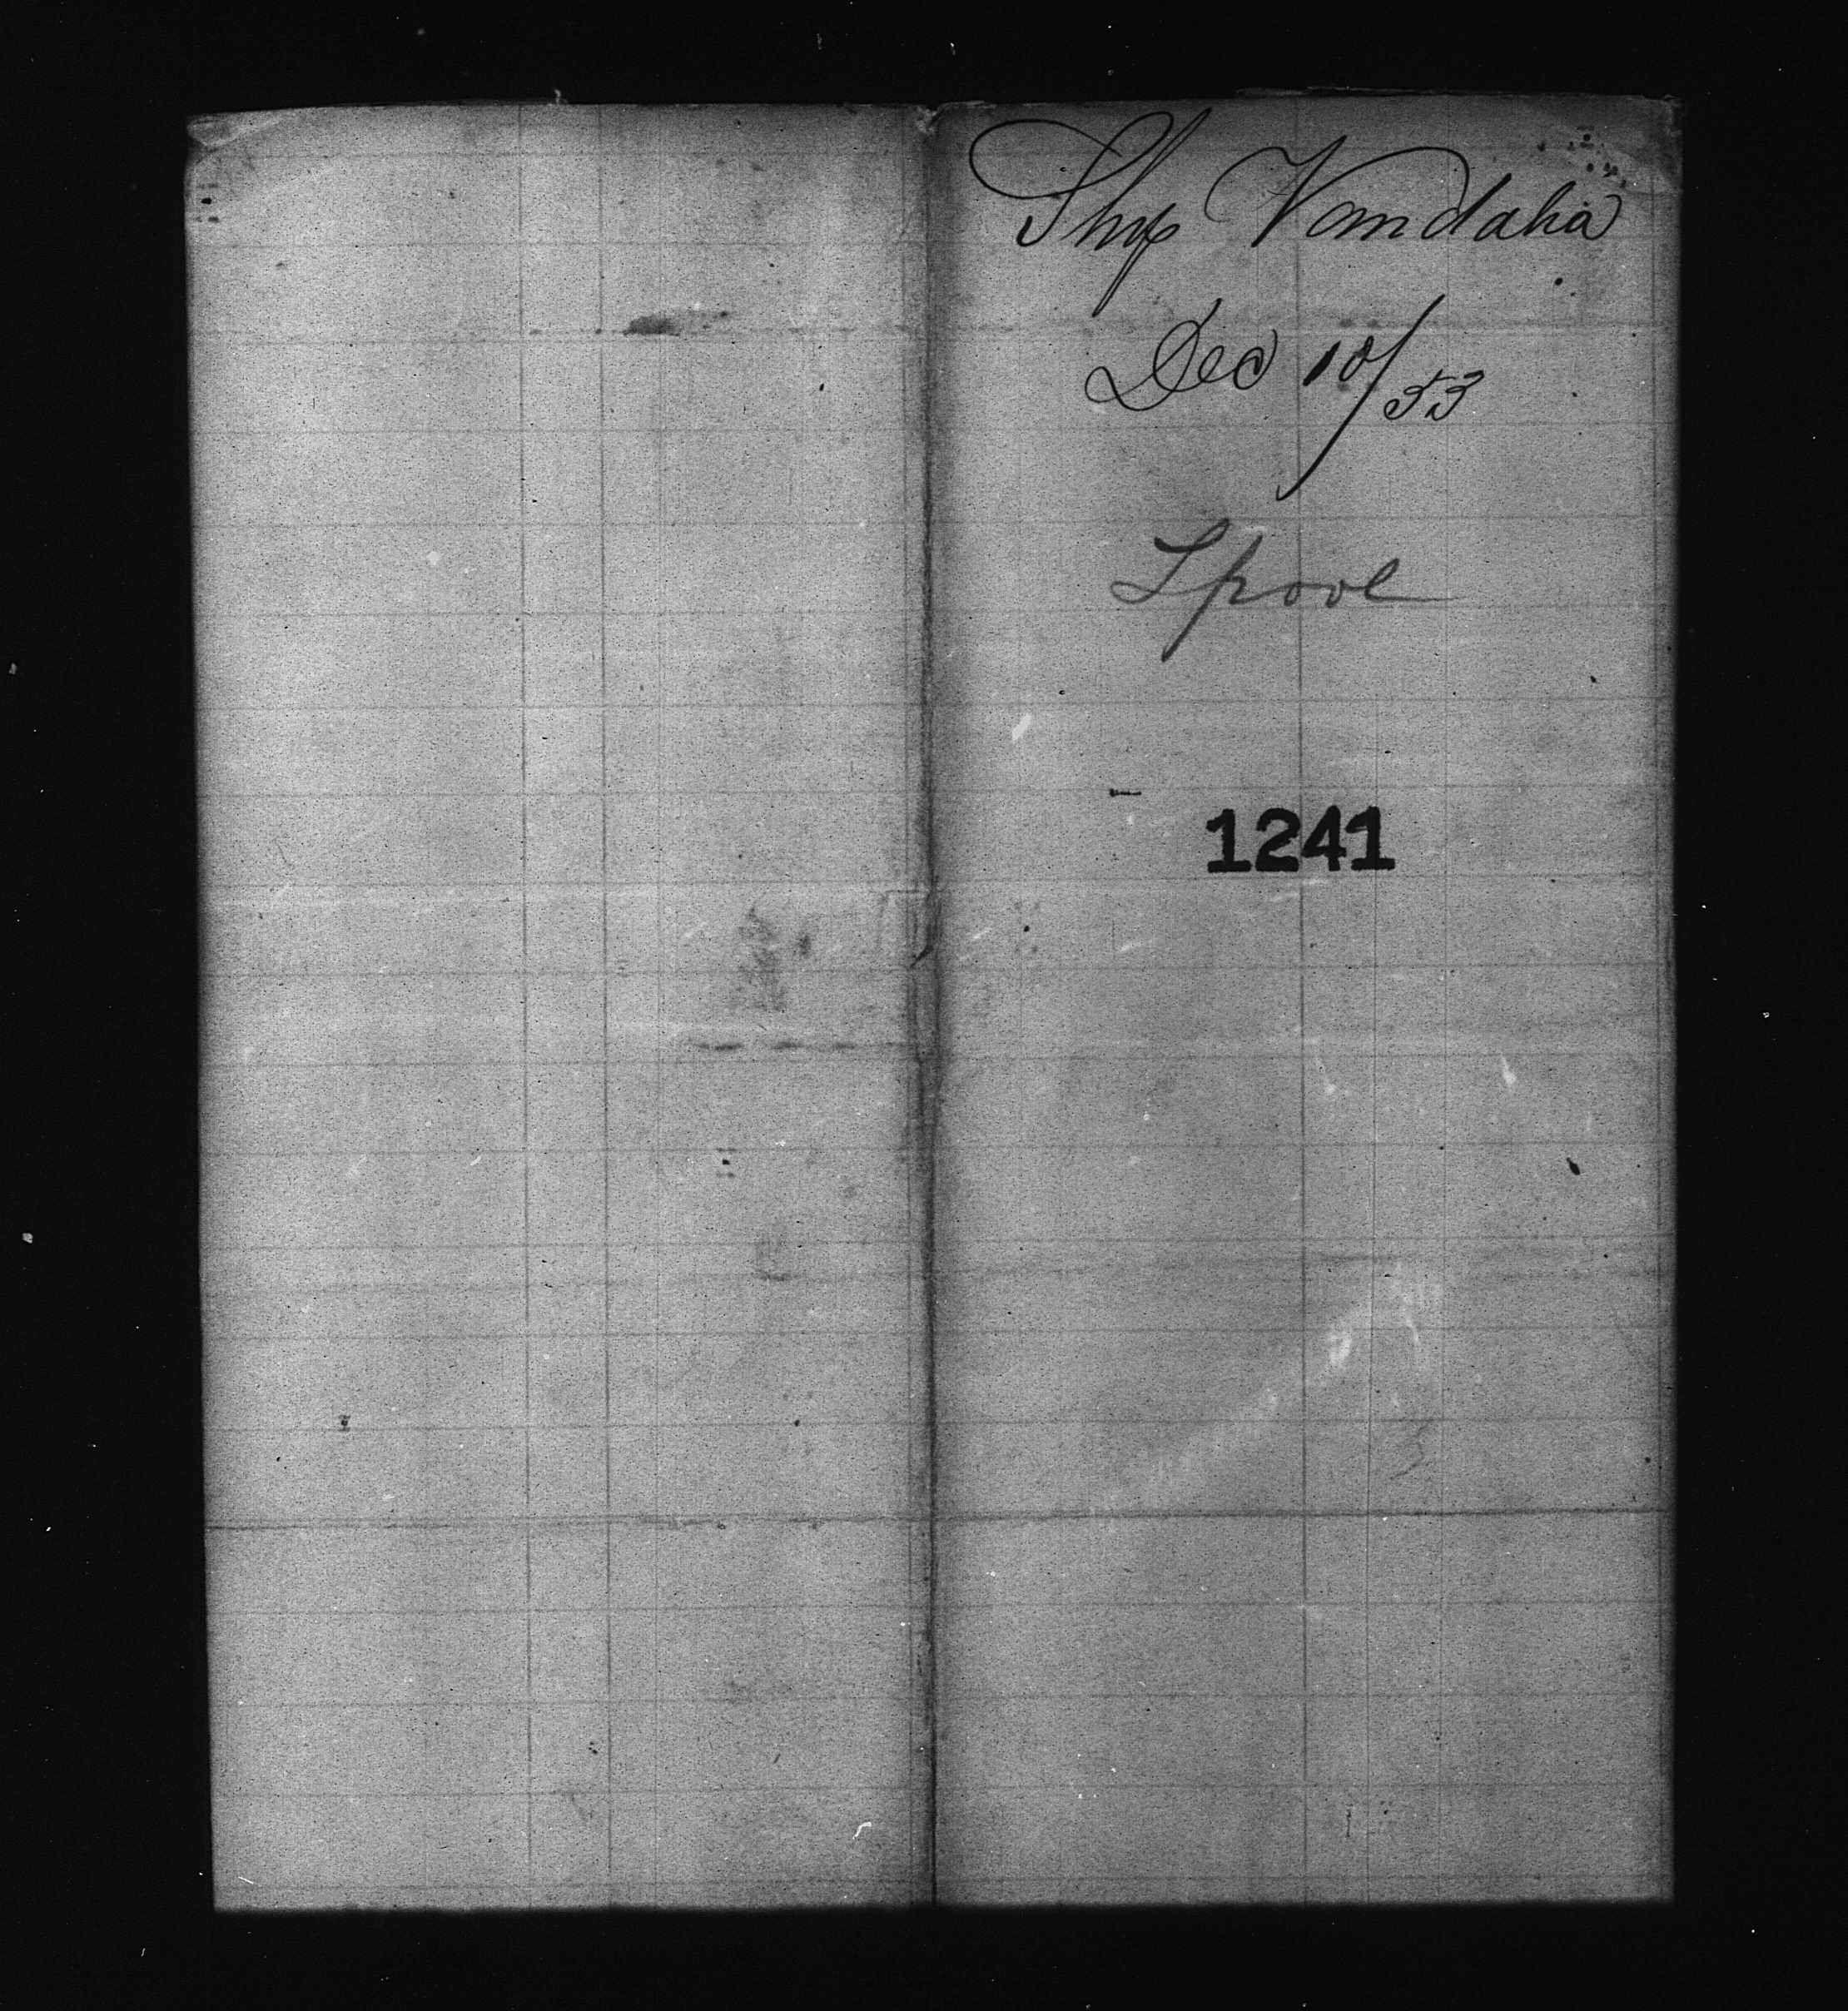 Ship Vandalia
Dec 10/53
Lpool
1241